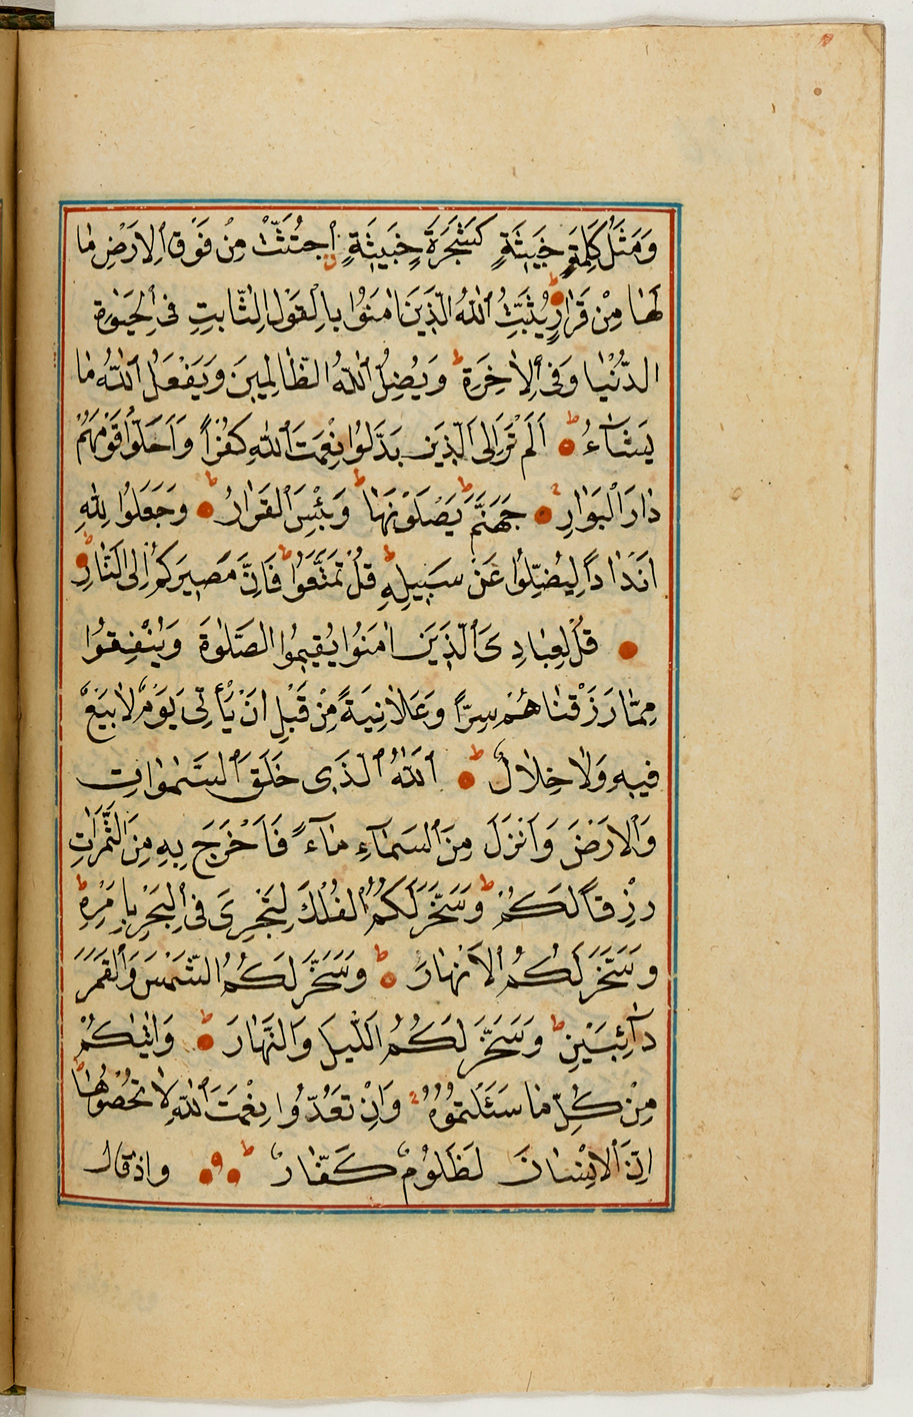 وَمَثَلُ كَلِمَةٍ خَبِيثَةٍ كَشَجَرَةٍ خَبِيثَةٍ اجْتُثَّتْ مِنْ فَوْقِ الْاَرْضِ مَا
لَهَا مِنْ قَرَارٍ يُثَبِّتُ اللّٰهُ الَّذِينَ اٰمَنُوا بِالْقَوْلِ الثَّابِتِ فِى الْحَيٰوةِ
الدُّنْيَا وَفِى الْاٰخِرَةِ ط وَيُضِلُّ اللّٰهُ الظَّالِمِينَ وَيَفْعَلُ اللّٰهُ مَا
يَشَاۤءُ ط اَلَمْ تَرَ اِلَى الَّذِينَ بَدَّلُوا نِعْمَتَ اللّٰهِ كُفْرًا وَاَحَلُّوا قَوْمَهُمْ
دَارَ الْبَوَارِ جَهَنَّمَ ط يَصْلَوْنَهَا ط وَبِئْسَ الْقَرَارُ ط وَجَعَلُوا لِلّٰهِ
اَنْدَادًا لِيُضِلُّوا عَنْ سَبِيلِهِ ط قُلْ تَمَتَّعُوا ط فَاِنَّ مَصِيرَكُمْ اِلَى النَّارِ ط
قُلْ لِعِبَادِىَ الَّذِينَ اٰمَنُوا يُقِيمُوا الصَّلٰوةَ وَيُنْفِقُوا
مِمَّا رَزَقْنَاهُمْ سِرًّا وَعَلَانِيَةً مِنْ قَبْلِ اَنْ يَأْتِىَ يَوْمٌ لَا بَيْعٌ
فِيهِ وَلَا خِلَالٌ ط اَللّٰهُ الَّذِى خَلَقَ السَّمٰوَاتِ
وَالْاَرْضَ وَاَنْزَلَ مِنَ السَّمَاۤءِ مَاۤءً فَاَخْرَجَ بِهِ مِنَ الثَّمَرَاتِ
رِزْقًا لَكُمْ ط وَسَخَّرَ لَكُمُ الْفُلْكَ لِتَجْرِىَ فِى الْبَحْرِ بِاَمْرِهِ ط
وَسَخَّرَ لَكُمُ الْاَنْهَارَ ط وَسَخَّرَ لَكُمُ الشَّمْسَ وَالْقَمَرَ
دَاۤئِبَيْنِ ط وَسَخَّرَ لَكُمُ الَّيْلَ وَالنَّهَارَ ط وَاٰتٰيكُمْ
مِنْ كُلِّ مَا سَئَلْتُمُوهُ وَاِنْ تَعُدُّوا نِعْمَتَ اللّٰهِ لَا تُحْصُوهَا ط
اِنَّ الْاِنْسَانَ لَظَلُومٌ كَفَّارٌ ط وَاِذْ قَالَ